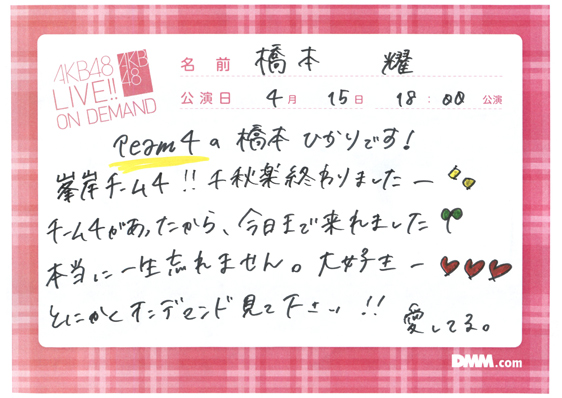 AKB48
LIVE!!
ON DEMAND
AKB
48
名前 橋本 耀
公演日 4月 15日 18:00 公演
Team4の橋本ひかりです!
峯岸チーム4!!千秋楽終わりましたー
チーム4があったから、今日まで来れました
本当に一生忘れません。大好きー
とにかくオンデマンド見て下さい!!
愛してる。
DMM.com